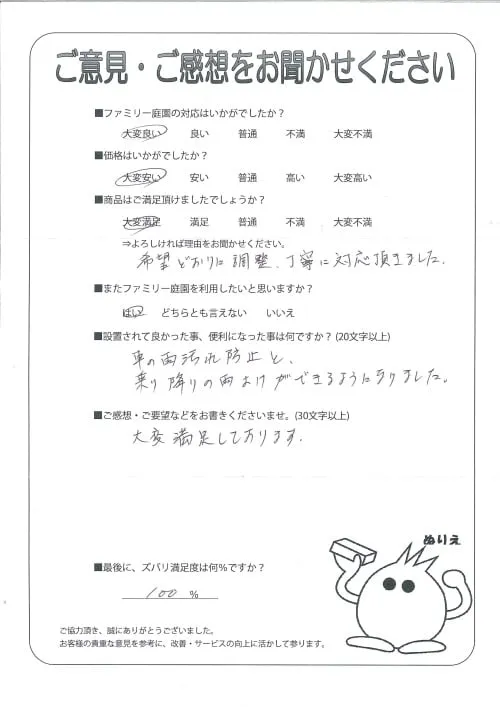 ご意見・ご感想をお聞かせください
■ファミリー庭園の対応はいかがでしたか？
大変良い 良い 普通 不満 大変不満
■価格はいかがでしたか？
大変安い 安い 普通 高い 大変高い
■商品はご満足頂けましたでしょうか？
大変満足 満足 普通 不満 大変不満
⇒よろしければ理由をお聞かせください。
希望どおりに調整、丁寧に対応頂きました。
■またファミリー庭園を利用したいと思いますか？
はい どちらとも言えない いいえ
■設置されて良かった事、便利になった事は何ですか？(20文字以上)
車の雨汚れ防止と、
乗り降りの雨よけができるようになりました。
■ご感想・ご要望などをお書きくださいませ。(30文字以上)
大変満足しております。
ぬりえ
■最後に、ズバリ満足度は何％ですか？
100 %
ご協力頂き、誠にありがとうございました。
お客様の貴重な意見を参考に、改善・サービスの向上に活かして参ります。